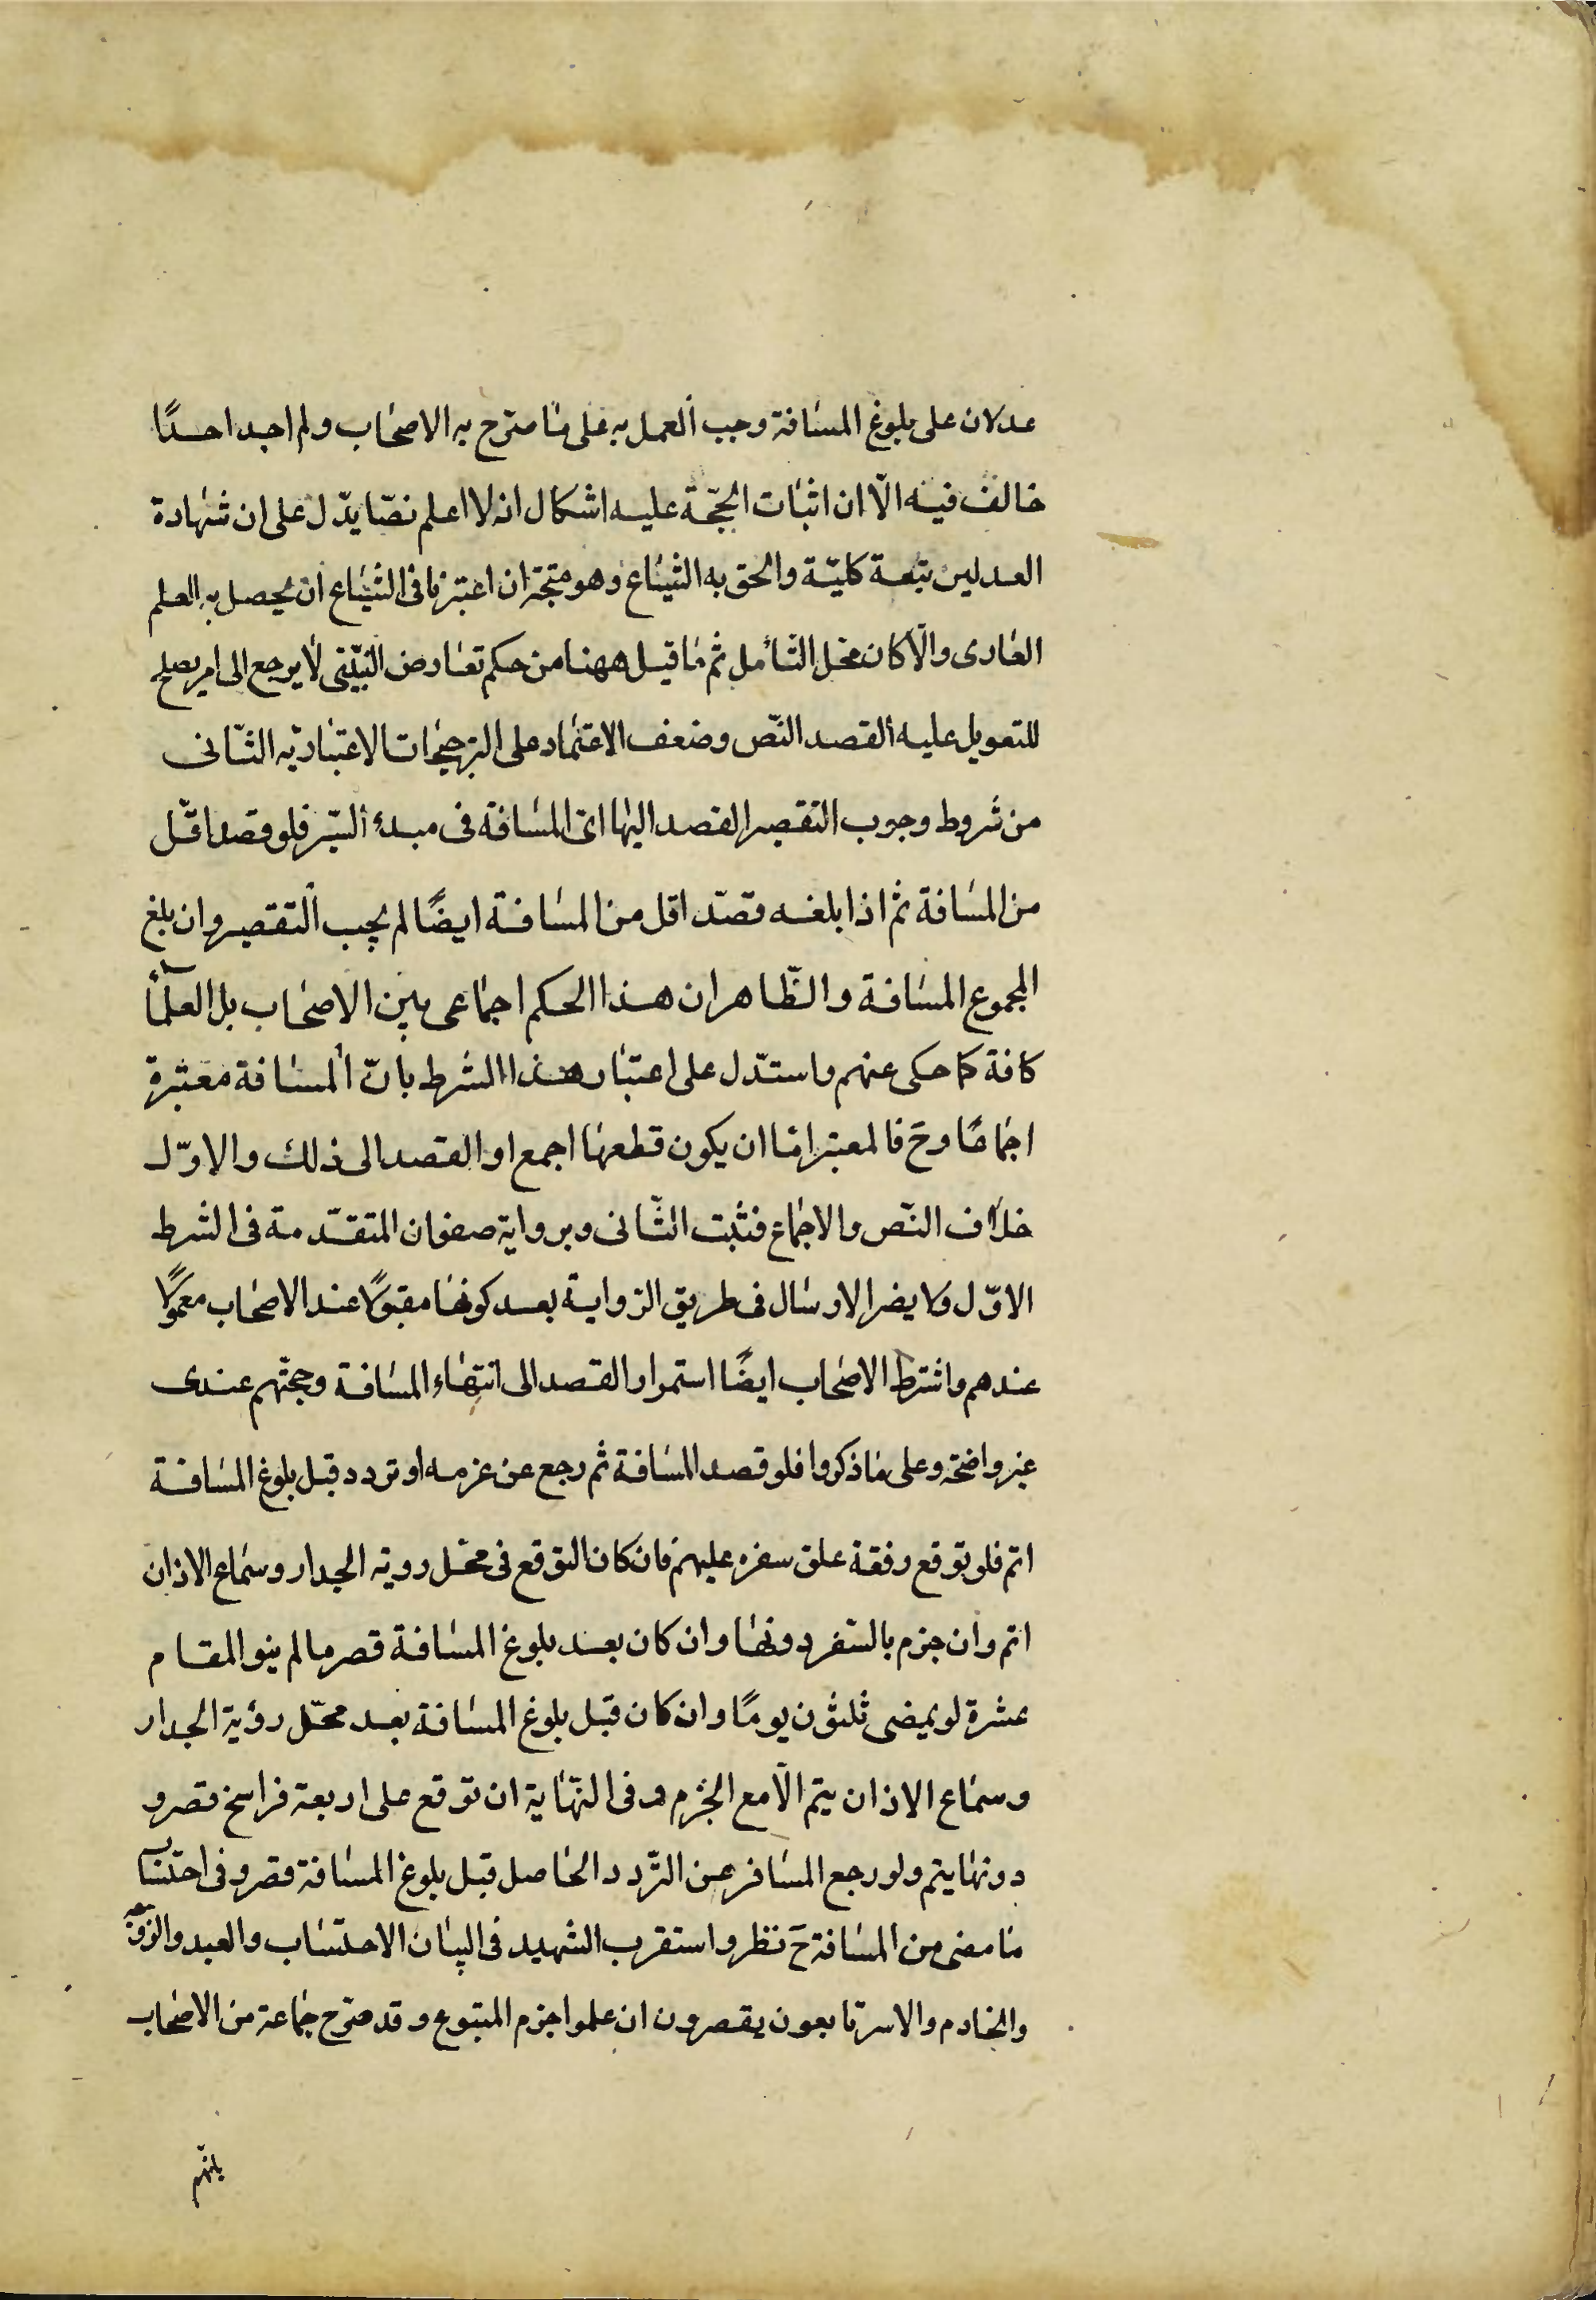 عدلان على بلوغ المسافة وجب العمل به على ما صرّح به الاصحاب ولم اجد احدًا
خالف فيه الّا ان اثبات الحجّة عليه اشكال انه لا اعلم نصّا يدّل على ان شهادة
العدلين متبعة كليّة والحق به الشياع وهو متجّه ان اعتبرنا فى الشياع ان يحصل به العلم
العادى والّا كان محل التأمل ثم ما قيل ههنا من حكم تعارض البيّنتى لا يرجع الى امر يصلح
للتعويل عليه القصد النّص وضعف الاعتماد على الترجيحات الاعتباريّه الثّانى
من شروط وجوب التقصير القصد اليها اى المسافة فى مبدء السّير فلو قصد اقّل
من المسافة ثم اذا بلغه قصّد اقل من المسافة ايضًا لم يجب التقصير وان بلغ
المجموع المسافة والظّاهر ان هذا الحكم اجماعى بين الاصحاب بل العلمآء
كافة كما حكى عنهم واستدّل على اعتبار هذا الشرط بانّ المسافة معتبرة
اجماعًا وح فالمعتبر امّا ان يكون قطعها اجمع او القصد الى ذلك والاوّل
خلاف النّص والاجماع فثبت الثّانى وبرواية صفوان المتقدّمة فى الشرط
الاوّل ولا يضر الارسال فى طريق الرّواية بعد كونها مقبولًا عند الاصحاب معمولًا
عندهم واشترط الاصحاب ايضًا استمرار القصد الى انتهاء المسافة وحجّتهم عندى
غير واضحة وعلى ما ذكروا فلو قصد المسافة ثم رجع عن عزمه او تردد قبل بلوغ المسافة
اتم فلو توقع رفقة علق سفره عليهم فان كان التوقع فى محّل روية الجدار وسماع الاذان
اتم وان جزم بالسّفر دونها وان كان بعد بلوغ المسافة قصر ما لم ينو المقام
عشرة لو يمضى ثلثون يومًا وان كان قبل بلوغ المسافة بعد محّل رؤية الجدار
وسماع الاذان يتم الّا مع الجزم وفى النّهاية ان توقع على اربعة فراسخ قصر و
دونها يتم ولو رجع المسافر عن التّردد الحاصل قبل بلوغ المسافة قصر وفى احتساب
ما مضى من المسافة ح نظر واستقرب الشهيد فى البيان الاحتساب والعبد والزوجه
والخادم والاسر تابعون يقصرون ان علموا جزم المتبوع وقد صرّح جماعة من الاصحاب
بانّهم